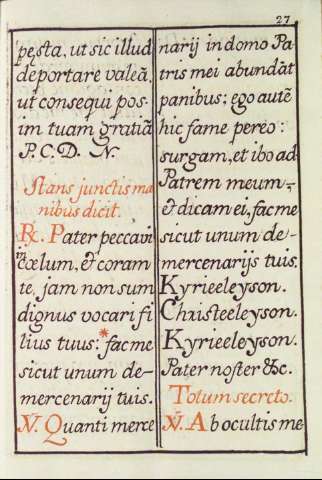 27
pesta, ut sic illud
deportare valeã,
ut consequi pos-
im tuam gratiã
P. C. D. N.
Stans junctis ma
nibus dicit.
℟. Pater peccavi
in cœlum, & coram
te, jam non sum
dignus vocari fi
lius tuus: * fac me
sicut unum de-
mercenarij tuis.
℣. Quanti merce
narij in domo Pa
tris mei abundãt
panibus; ego autẽ
hic fame pereo:
surgam, et ibo ad
Patrem meum,
& dicam ei, fac me
sicut unum de-
mercenarijs tuis.
Kyrieeleyson.
Christeeleyson.
Kyrieeleyson.
Pater noster &c.
Totum secreto.
℣. Ab ocultis me